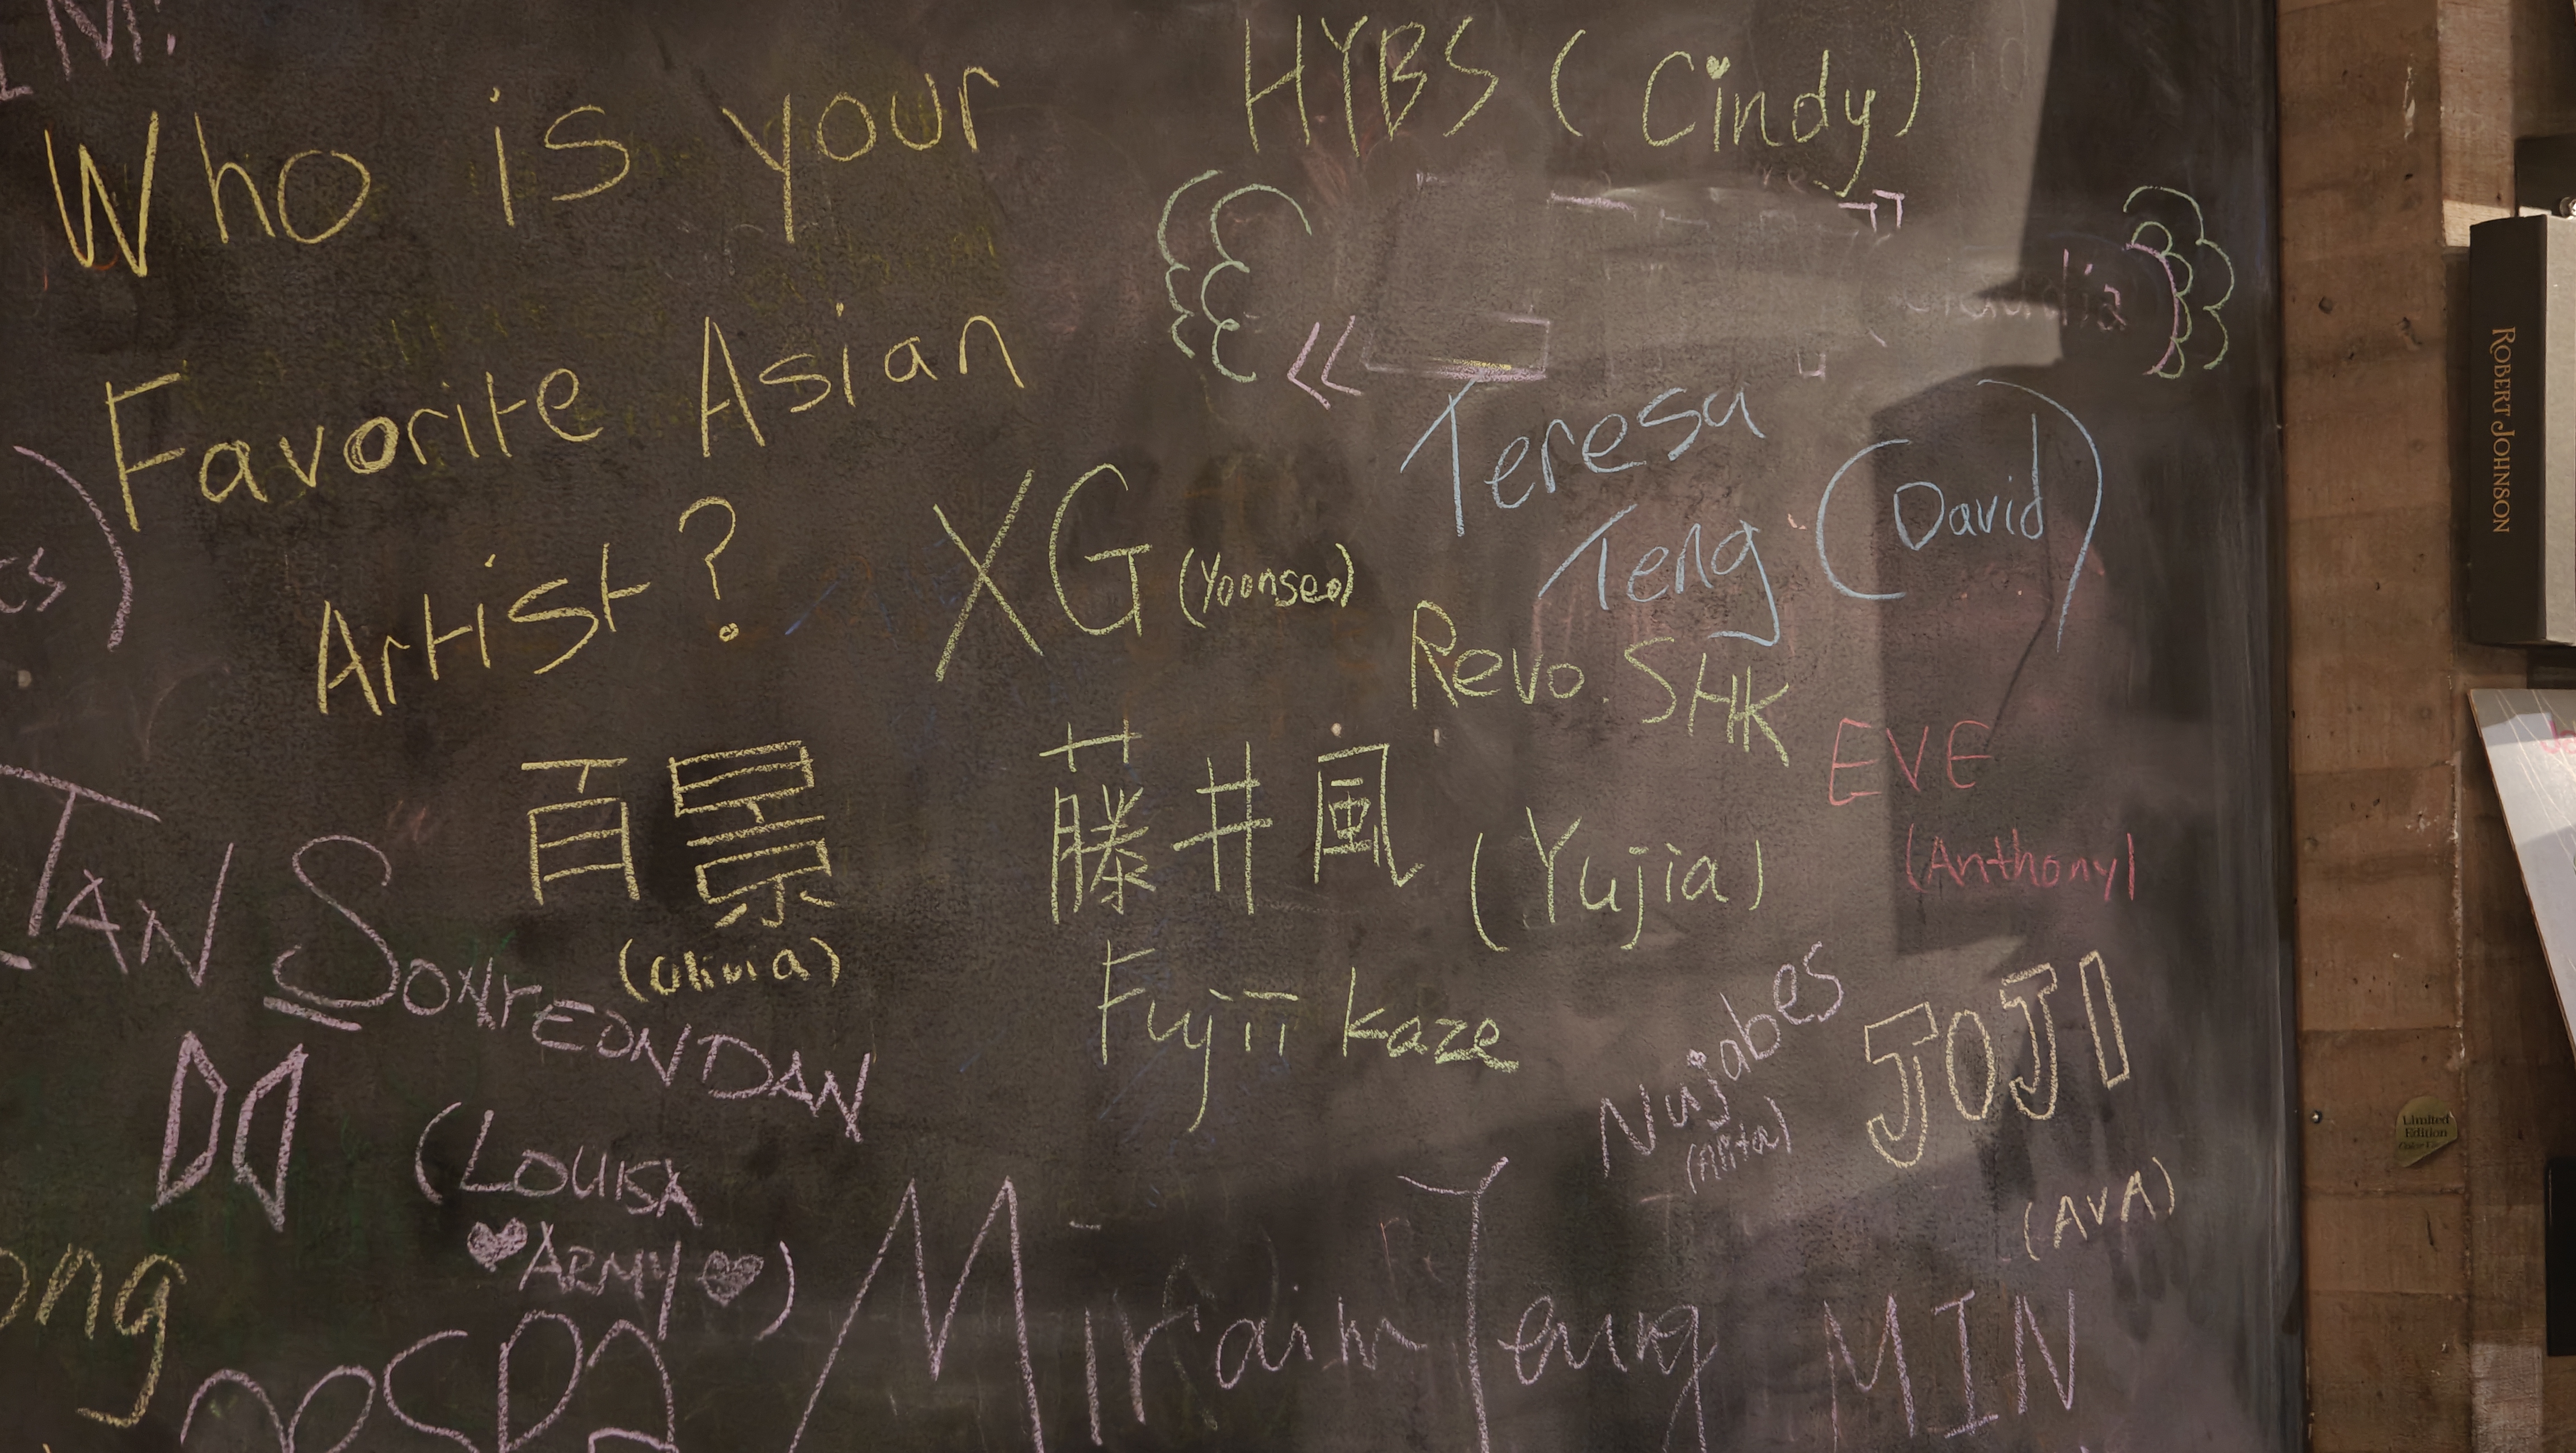 M!
Who is your
Favorite Asian
Artist?
HYBS (Cindy)
Teresa
Teng (David)
XG (Yoonseo)
Revo. SHK
EVE
(Anthony)
百景
(Olivia)
藤井風 (Yujia)
Fujii kaze
TAN SONYEONDAN
(LOUISA
ARMY)
Nujabes
JOJI
(AVA)
ong
aespa
Miriam Yeung
MIN
ROBERT JOHNSON
Limited
Edition